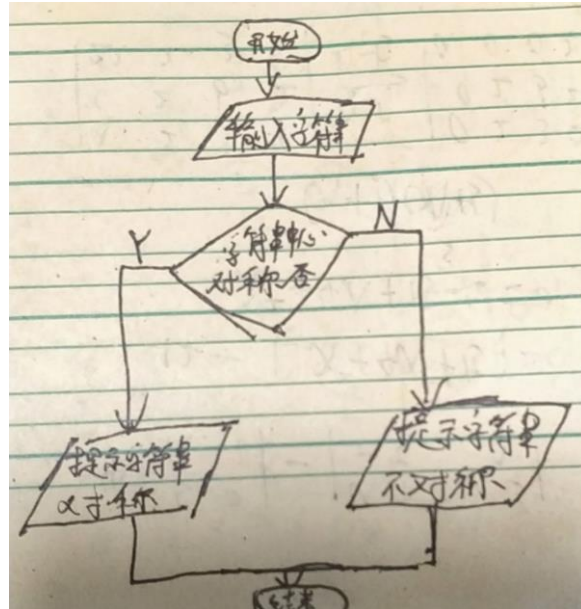 开始
输入字符
字符串中心
对称否
Y
N
提示字符串
对称
提示字符串
不对称
结束